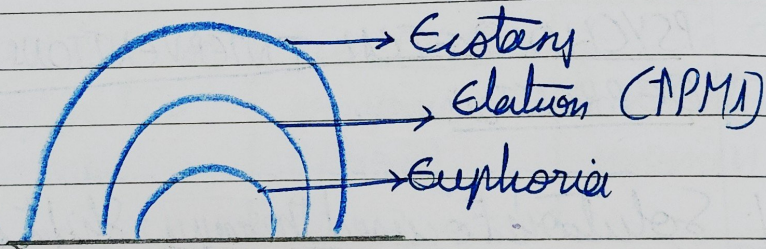 Ecstasy
Elation (↑PMA)
Euphoria